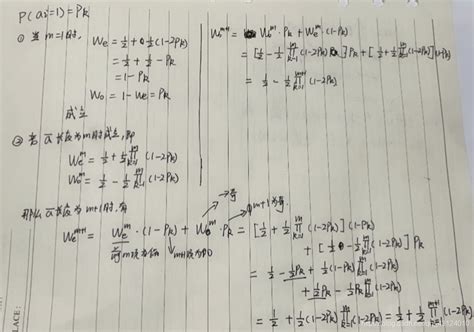 P(ai=1)=Pk
① 当 m=1时,
We = ½ + ½(1-2Pk)
= ½ + ½ - Pk
= 1-Pk
Wo = 1-We = Pk
成立
② 若 a 长度为 m 时成立, 即
We^m = ½ + ½ ∏_{k=1}^{m} (1-2Pk)
Wo^m = ½ - ½ ∏_{k=1}^{m} (1-2Pk)
那么 a 长度为 m+1 时, 有
We^{m+1} = We^m · (1-Pk) + Wo^m · Pk = [½ + ½ ∏_{k=1}^{m} (1-2Pk)] (1-Pk)
+ [½ - ½ ∏_{k=1}^{m} (1-2Pk)] Pk
= ½ - ½Pk + ½(1-Pk) ∏_{k=1}^{m} (1-2Pk)
+ ½Pk - ½Pk ∏_{k=1}^{m} (1-2Pk)
= ½ + ½(1-2Pk) ∏_{k=1}^{m} (1-2Pk) = ½ + ½ ∏_{k=1}^{m+1} (1-2Pk)
m+1为奇
Wo^{m+1} = Wo^m · Pk + We^m · (1-Pk)
= [½ - ½ ∏_{k=1}^{m} (1-2Pk)] Pk + [½ + ½ ∏_{k=1}^{m} (1-2Pk)] (1-Pk)
= ½ - ½ ∏_{k=1}^{m+1} (1-2Pk)
PLACE: